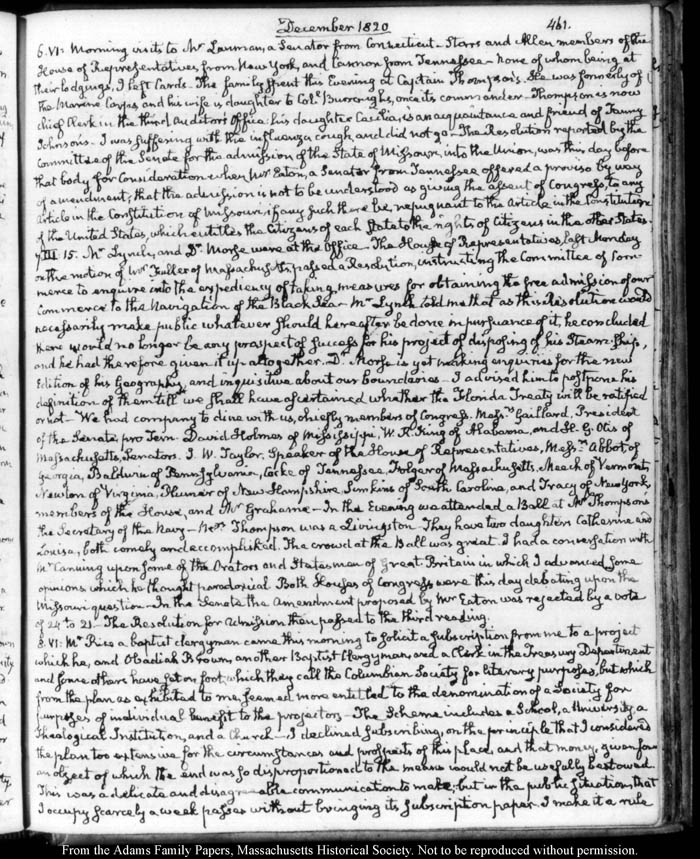 December 1820
461.
6. VI: Morning visits to Mr Lanman, a Senator from Connecticut. Storrs and Allen members of the
House of Representatives, from New York, and Cannon from Tennessee. None of whom being at
their lodgings, I left Cards. The family spent this Evening at Captain Thompson's. He was formerly of
the Marine Corps, and his wife is daughter to Coll. Burroughs, once its commander. Thompson is now
chief Clerk in the third Auditor's Office: his daughter Cecilia, is an acquaintance and friend of Fanny
Johnson's. I was suffering with the influenza cough, and did not go. The Resolution reported by the
Committee of the Senate for the admission of the State of Missouri, into the Union, was this day before
that body for Consideration when Mr Eaton, a Senator from Tennessee offered a proviso by way
of amendment; that the admission is not to be understood as giving the assent of Congress, to any
Article in the Constitution of Missouri, if any such there be, repugnant to the Article in the Constitution
of the United States, which entitles the Citizens of each State to the rights of Citizens in the other States.
7. III. 15. Mr Lynch, and Dr Morse were at the Office. The House of Representatives, last Monday
on the motion of Mr Fuller of Massachusetts, passed a Resolution, instructing the Committee of Com-
merce to enquire into the expediency of taking measures for obtaining the free admission of our
Commerce to the Navigation of the Black Sea. Mr Lynch told me that as this Resolution would
necessarily make public whatever should hereafter be done in pursuance of it, he concluded
there would no longer be any prospect of success for his project of disposing of his Steam-Ship,
and he had therefore given it up altogether. Dr Morse is yet making enquiries for the new
Edition of his Geography, and inquisitive about our boundaries. I advised him to postpone his
definition of them till we shall have ascertained whether the Florida Treaty will be ratified
or not. We had company to dine with us, chiefly members of Congress. Messrs Gaillard, President
of the Senate, pro Tem. David Holmes of Mississippi, W. R. King of Alabama, and H. G. Otis of
Massachusetts, Senators. J. W. Taylor, Speaker of the House of Representatives, Messrs Abbot of
Georgia, Baldwin of Pennsylvania, Cocke of Tennessee, Folger of Massachusetts, Meech of Vermont,
Newton of Virginia, Plumer of New Hampshire, Simkins of South Carolina, and Tracy of New York,
members of the House, and Mr Grahame. In the Evening we attended a Ball at Mr Thompson's
the Secretary of the Navy. Mrs Thompson was a Livingston. They have two daughters Catherine and
Louisa, both comely and accomplished. The crowd at the Ball was great. I had a conversation with
Mr Canning upon some of the Orators and Statesmen of Great-Britain in which I advanced some
opinions which he thought paradoxical. Both Houses of Congress were this day debating upon the
Missouri question. In the Senate the Amendment proposed by Mr Eaton was rejected by a vote
of 24 to 21. The Resolution for admission then passed to the third reading.
8. VI: Mr Rice a baptist clergyman came this morning to solicit a subscription from me to a project
which he, and Obadiah Brown, another Baptist Clergyman, and a Clerk in the Treasury Department
and some others have set on foot, which they call the Columbian Society for literary purposes, but which
from the plan as exhibited to me seemed more entitled to the denomination of a Society for
purposes of individual benefit to the projectors. The Scheme includes a School, a University, a
Theological Institution, and a Church. I declined subscribing, on the principle that I considered
the plan too extensive for the circumstances and prospects of this place, and that money, given for
an object of which the end was so disproportioned to the means would not be usefully bestowed.
This was a delicate and disagreeable communication to make; but in the public situation, that
I occupy scarcely a week passes without bringing its subscription paper. I make it a rule
From the Adams Family Papers, Massachusetts Historical Society. Not to be reproduced without permission.